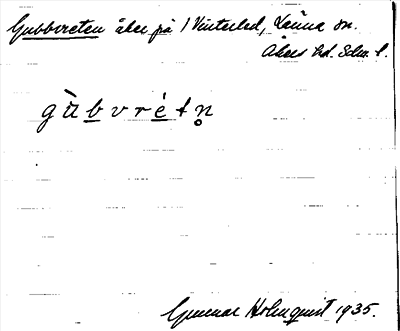 Gubbvreten åker på 1 Vinterled, Länna sn.
Åkers hd. Sdm. l.
gù̀b̲vrė̲tn̥
Gunnar Holmquist 1935.